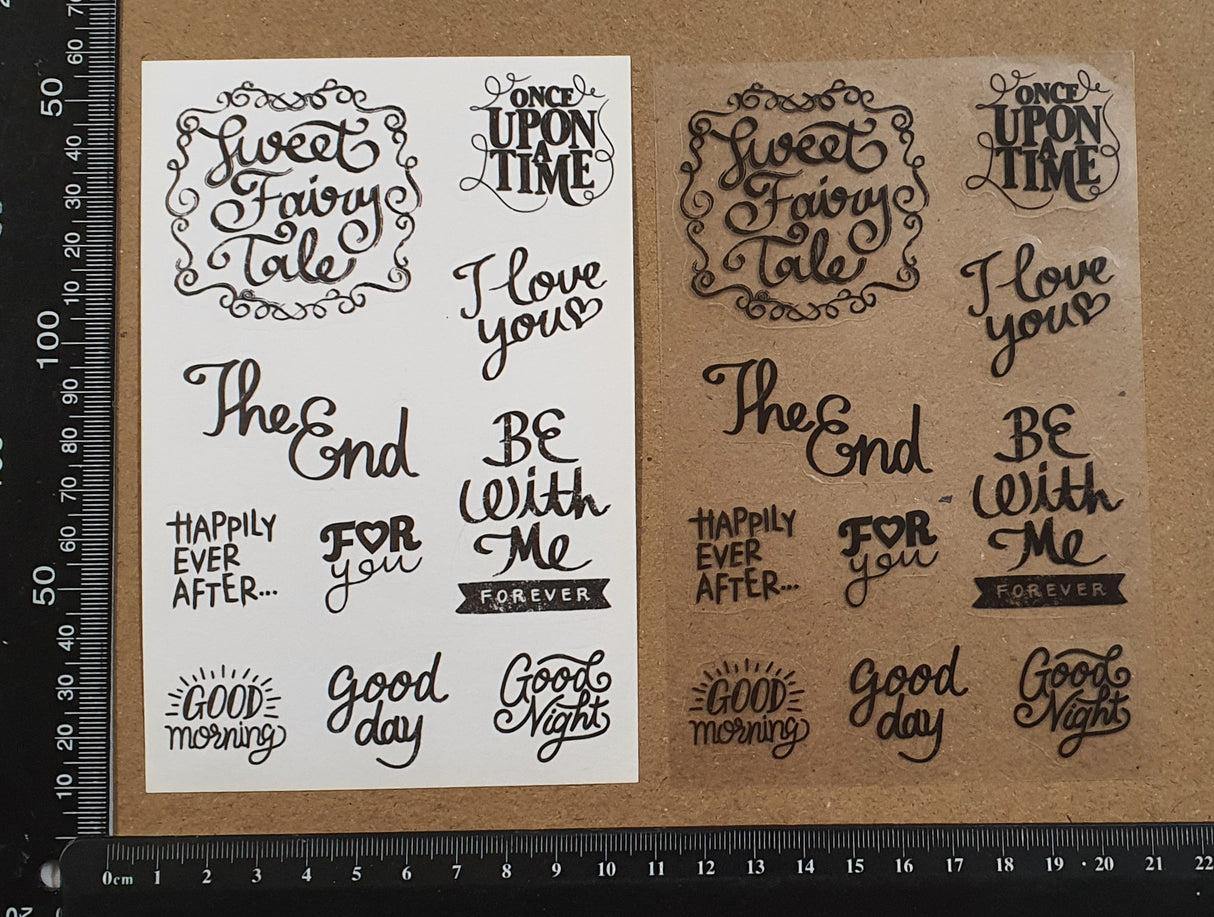 Sweet
Fairy
Tale
ONCE
UPON
A
TIME
I love
you
The
End
BE
With
Me
FOREVER
HAPPILY
EVER
AFTER...
FOR
you
GOOD
morning
good
day
Good
Night
Sweet
Fairy
Tale
ONCE
UPON
A
TIME
I love
you
The
End
BE
With
Me
FOREVER
HAPPILY
EVER
AFTER...
FOR
you
GOOD
morning
good
day
Good
Night
60
50
40
30
20
10
100
90
80
70
60
50
40
30
20
10
0cm 1 2 3 4 5 6 7 8 9 10 11 12 13 14 15 16 17 18 19 20 21 22